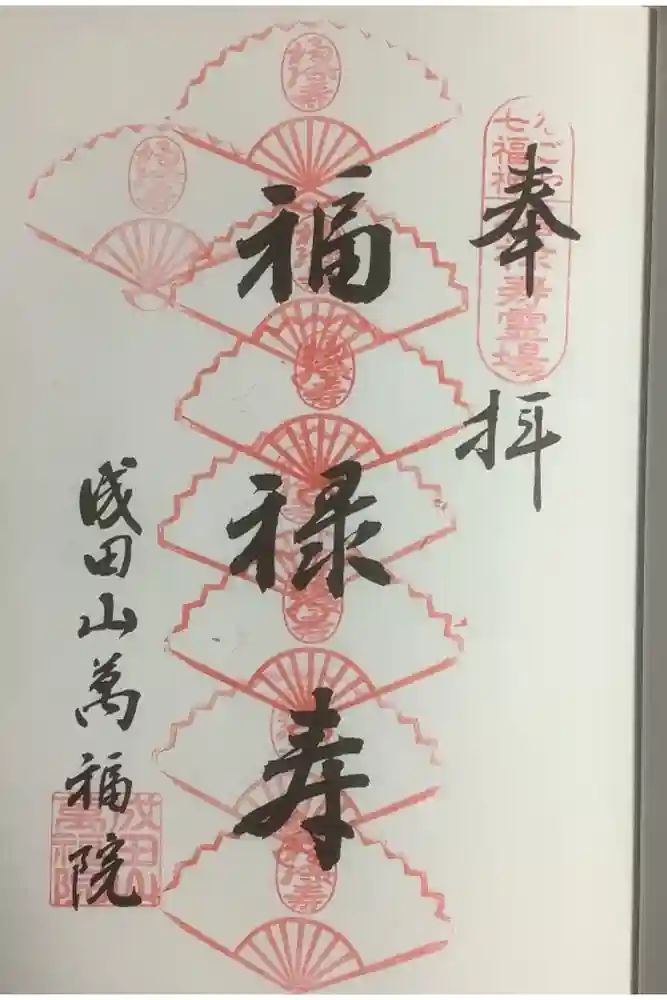 奉拝
なごや七福神
福禄寿霊場
福禄寿
成田山萬福院
成田山
萬福院
福禄寿
福禄寿
福禄寿
福禄寿
福禄寿